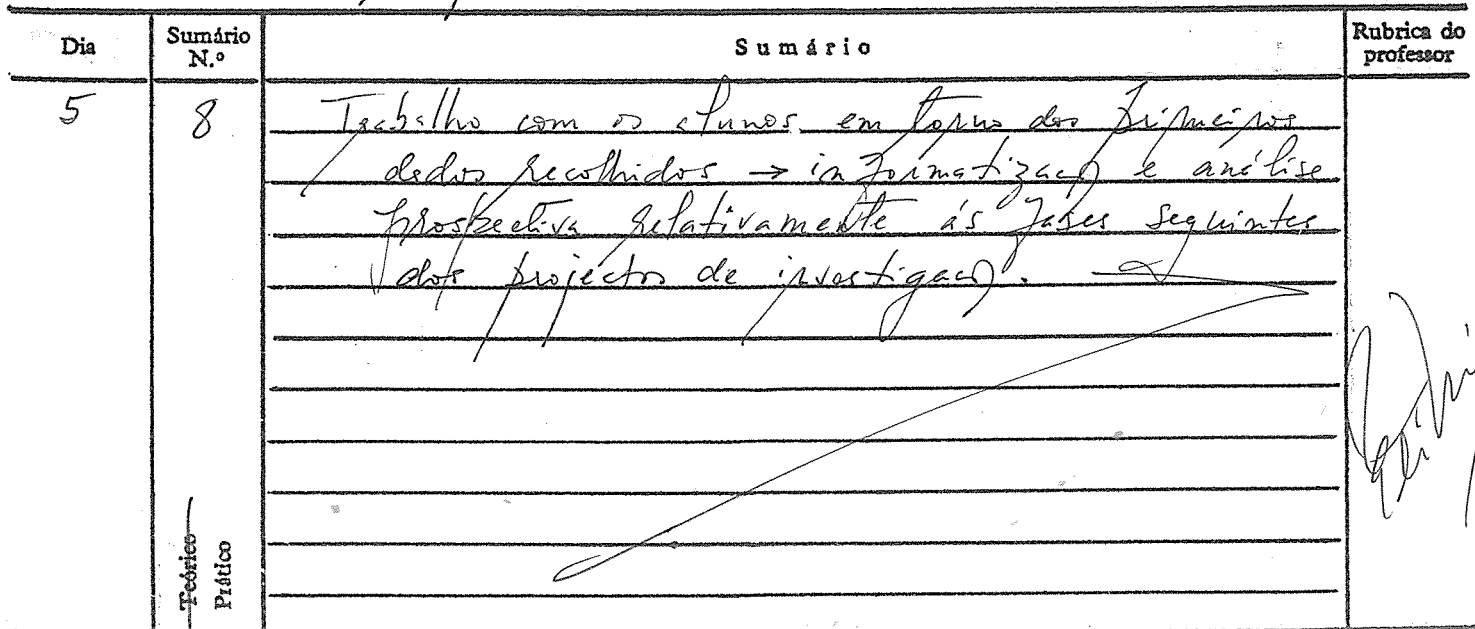 Dia
Sumário N.º
Sumário
Rubrica do professor
5
8
Trabalho com os alunos, em torno dos primeiros
dados recolhidos → informatização e análise
prospectiva relativamente às fases seguintes
dos projectos de investigação.
Teórico
Prático